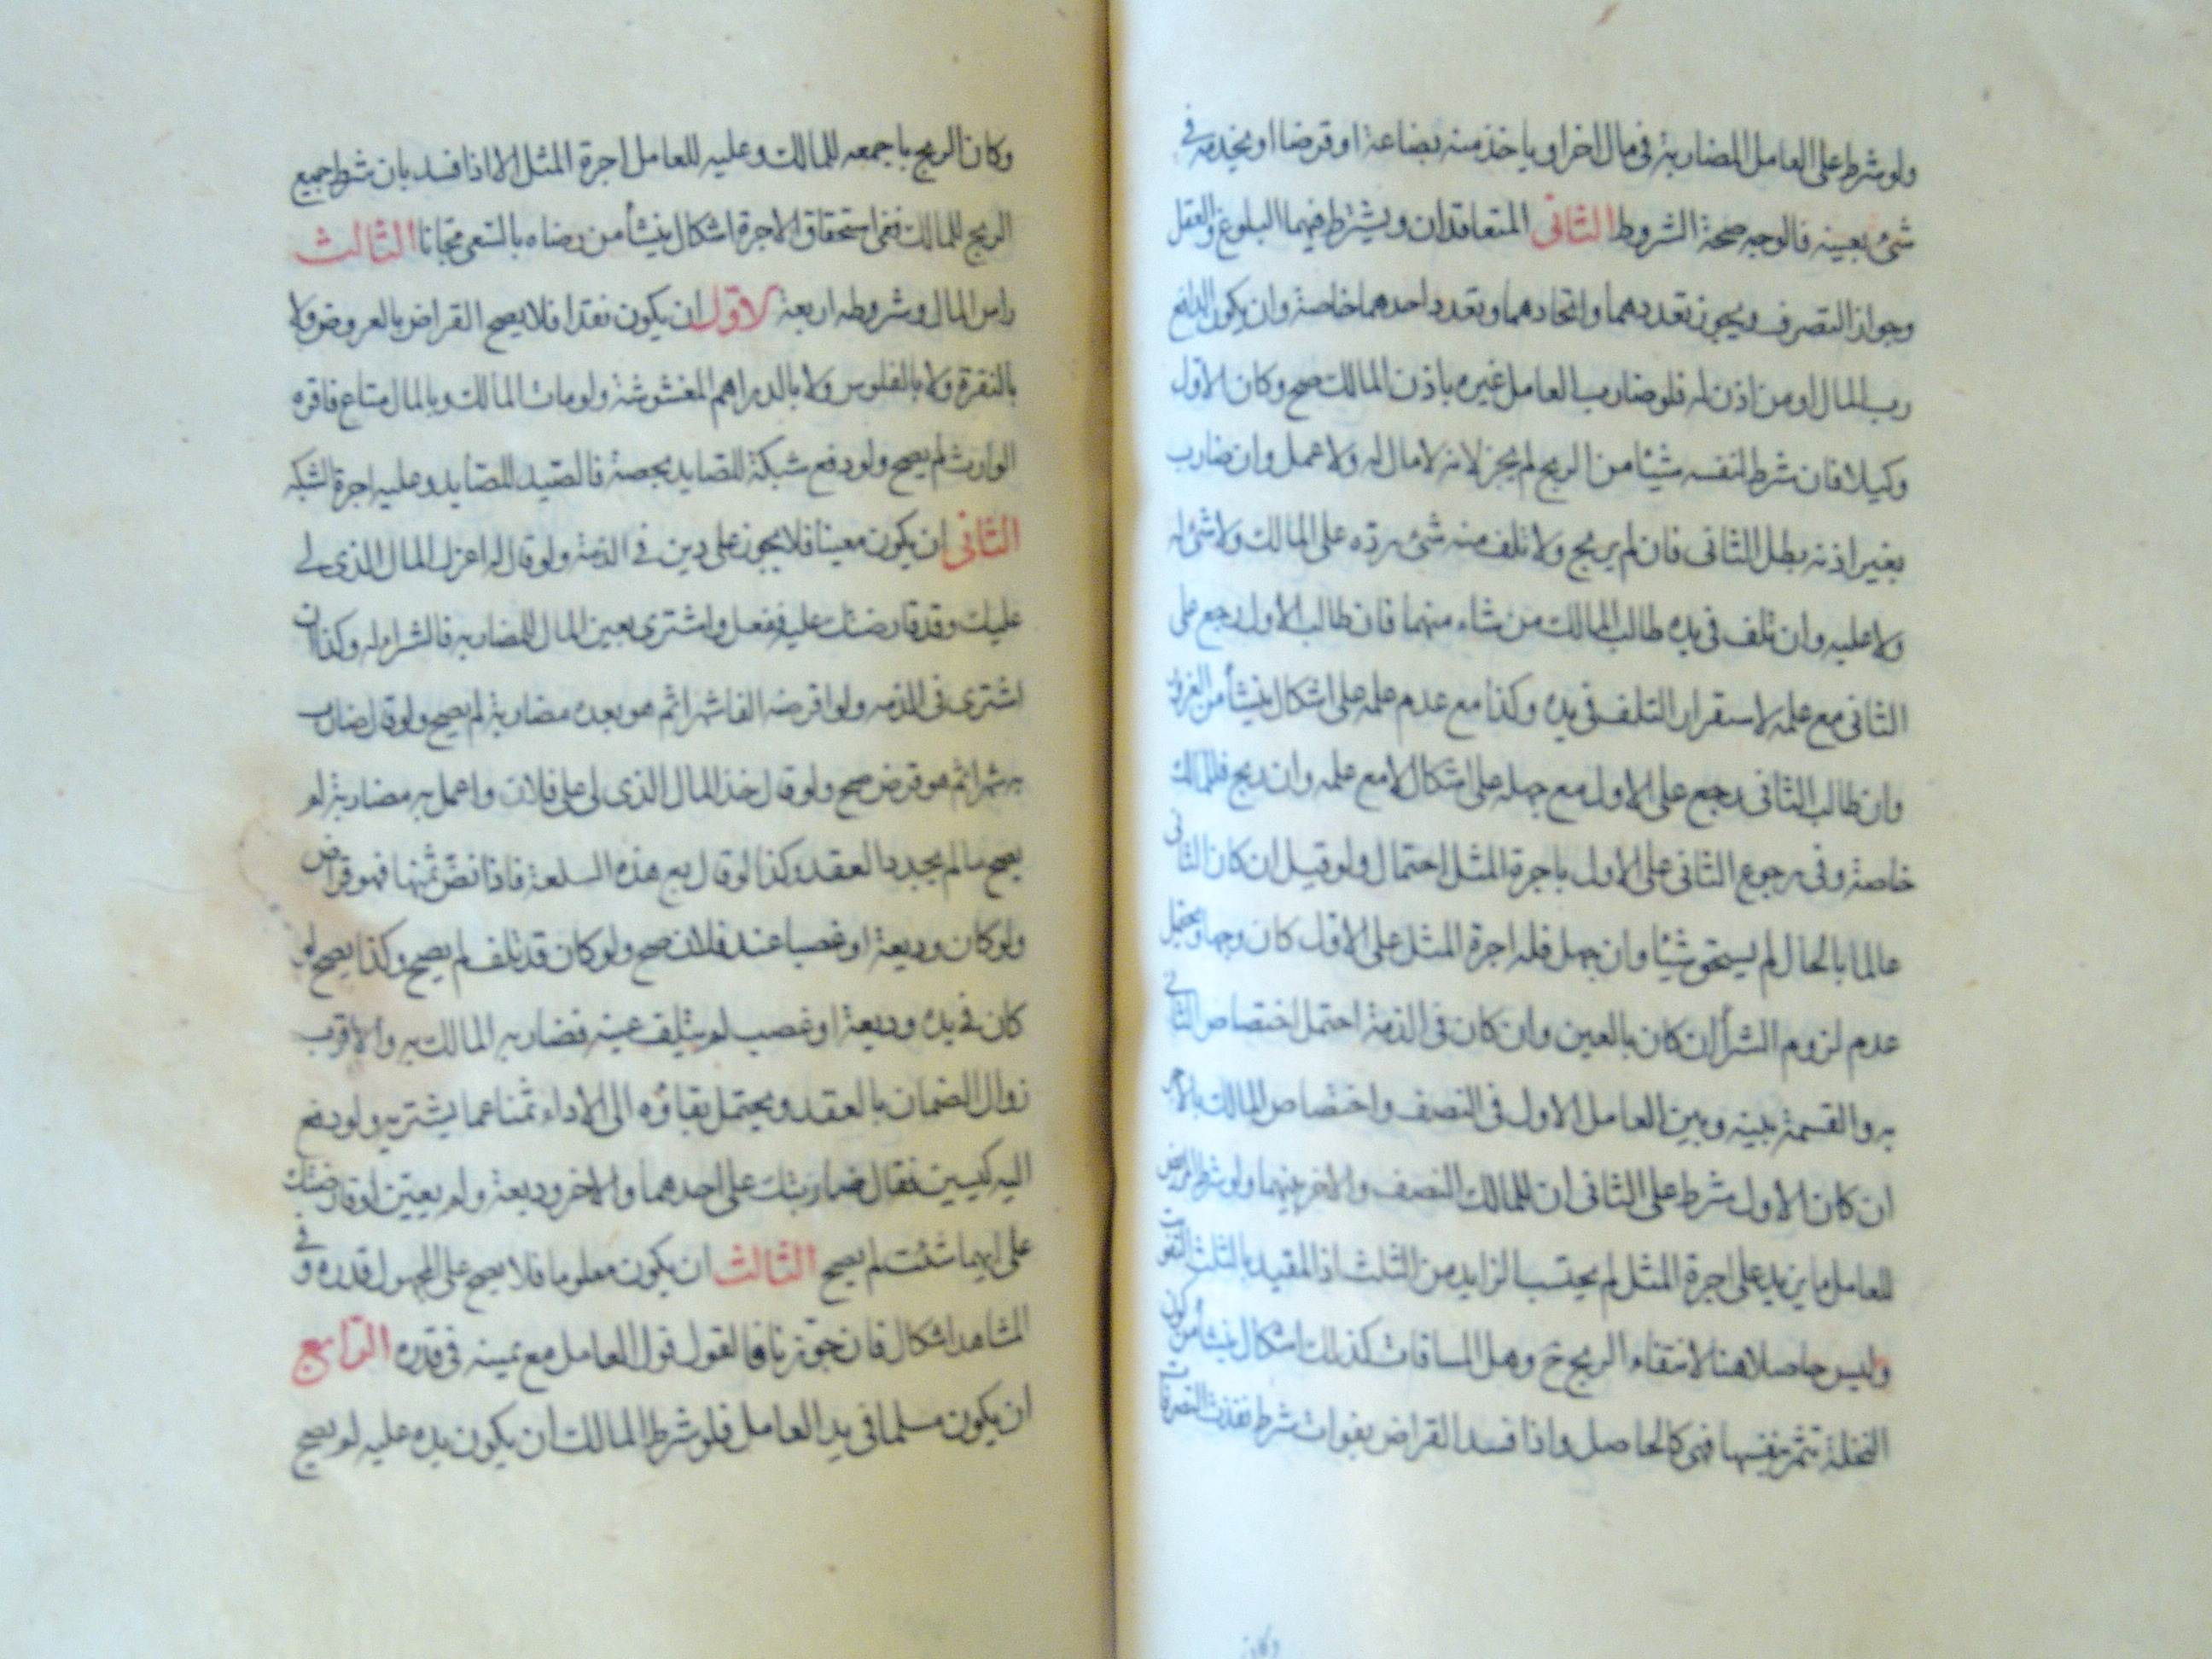 ولو شرط على العامل المضاربة فى مال اخر او ياخذ منه بضاعة او قرضا او يخدمه فى
شئ بعينه فالوجه صحة الشروط الثانى المتعاقدان ويشترط فيهما البلوغ والعقل
وجواز التصرف ويجوز تعددهما واتحادهما وتعدد احدهما خاصة وان يكون الدافع
رب المال او من اذن له فلو ضارب العامل غيره باذن المالك صح وكان الاول
وكيلا فان شرط لنفسه شيئا من الربح لم يجز لانه لا مال له ولا عمل وان ضارب
بغير اذنه بطل الثانى فان لم يربح ولا تلف منه شئ رده على المالك ولا شئ له
ولا عليه وان تلف فى يده طالب المالك من شاء منهما فان طالب الاول رجع على
الثانى مع علمه لاستقرار التلف فى يده وكذا مع عدم علمه على اشكال ينشأ من الغرور
وان طالب الثانى رجع على الاول مع جهله على اشكال لا مع علمه وان ربح فللمالك
خاصة وفى رجوع الثانى على الاول باجرة المثل احتمال ولو قيل ان كان الثانى
عالما بالحال لم يستحق شيئا وان جهل فله اجرة المثل على الاول كان وجها ويحتمل
عدم لزوم الشرأ ان كان بالعين وان كان فى الذمة احتمل اختصاص الثانى
به والقسمة بينه وبين العامل الاول فى النصف واختصاص المالك بالاخر
ان كان الاول شرط على الثانى ان للمالك النصف والاخر بينهما ولو شرط المريض
للعامل ما يزيد على اجرة المثل لم يحتسب الزايد من الثلث اذ المقيد بالثلث التفويت
وليس حاصلا هنا لانتفاء الربح ح وهل المساقات كذلك اشكال ينشأ من كون
النخلة تثمر بنفسها فهى كالحاصل واذا فسد القراض بفوات شرط نفذت التصرفات
وكان
وكان الربح باجمعه للمالك وعليه للعامل اجرة المثل الا اذا فسد بان شرط جميع
الربح للمالك ففى استحقاق الاجرة اشكال ينشأ من رضاه بالسعى مجانا الثالث
راس المال وشروطه اربعة الاول ان يكون نقدا فلا يصح القراض بالعروض ولا
بالنقرة ولا بالفلوس ولا بالدراهم المغشوشة ولو مات المالك وبالمال متاع فاقره
الوارث لم يصح ولو دفع شبكة للصايد بحصة فالصيد للصايد وعليه اجرة الشبكه
الثانى ان يكون معينا فلا يجوز على دين فى الذمة ولو قال له اعزل المال الذى لى
عليك وقد قارضتك عليه ففعل واشترى بعين المال للمضاربه فالشرا له وكذا ان
اشترى فى الذمه ولو اقرضه الفا شهرا ثم هو بعده مضاربة لم يصح ولو قال ضارب
به شهرا ثم هو قرض صح ولو قال خذ المال الذى لى على فلان واعمل به مضاربة لم
يصح ما لم يجدد العقد وكذا لو قال بع هذه السلعة فاذا نضّ ثمنها فهو قراض
ولو كان وديعة او غصبا عند فلان صح ولو كان قد تلف لم يصح وكذا يصح لو
كان فى يده وديعة او غصب لم يتلف عينه فضاربه المالك به والاقرب
زوال الضمان بالعقد ويحتمل بقاؤه الى الاداء ثمنا عما يشتريه ولو دفع
اليه كيسين فقال ضاربتك على احدهما والاخر وديعة ولم يعين او قارضتك
على ايهما شئت لم يصح الثالث ان يكون معلوما فلا يصح على المجهول قدره وفى
المشاهد اشكال فان جوزناه فالقول قول العامل مع يمينه فى قدره الرابع
ان يكون مسلما فى يد العامل فلو شرط المالك ان يكون يده عليه لم يصح